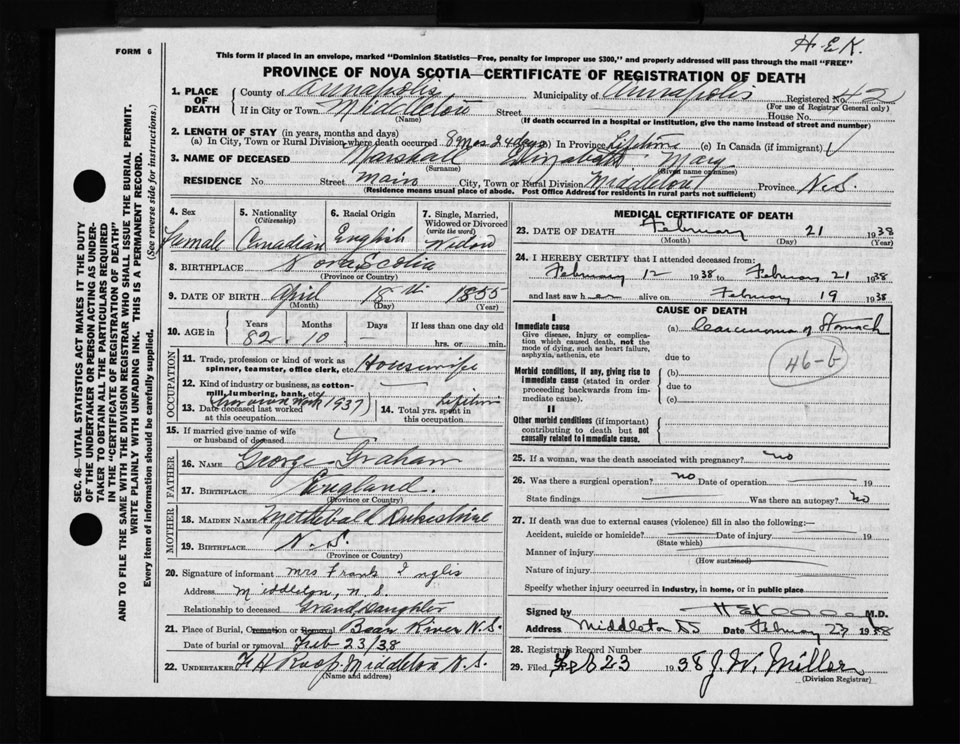 FORM 6
H-E.K.
This form if placed in an envelope, marked "Dominion Statistics—Free, penalty for improper use $300," and properly addressed will pass through the mail "FREE"
PROVINCE OF NOVA SCOTIA—CERTIFICATE OF REGISTRATION OF DEATH
1. PLACE OF DEATH County of Annapolis Municipality of Annapolis Registered No. 42
(For use of Registrar General only)
If in City or Town Middleton Street House No.
(Name) (If death occurred in a hospital or institution, give the name instead of street and number)
2. LENGTH OF STAY (in years, months and days)
(a) In City, Town or Rural Division where death occurred 8 mos 24 days (b) In Province Lifetime (c) In Canada (if immigrant)
3. NAME OF DECEASED Marshall Elizabeth Mary
(Surname) (Given name or names)
RESIDENCE No. Street Main City, Town or Rural Division Middleton Province N.S.
(Residence means usual place of abode. Post Office Address for residents in rural parts not sufficient)
4. Sex Female
5. Nationality (Citizenship) Canadian
6. Racial Origin English
7. Single, Married, Widowed or Divorced (write the word) Widow
8. BIRTHPLACE Nova Scotia
(Province or Country)
9. DATE OF BIRTH April 18th 1855
(Month) (Day) (Year)
10. AGE in Years 82 Months 10 Days — If less than one day old hrs. or min.
OCCUPATION
11. Trade, profession or kind of work as spinner, teamster, office clerk, etc. Housewife
12. Kind of industry or business, as cotton-mill, lumbering, bank, etc.
13. Date deceased last worked at this occupation 1937
14. Total yrs. spent in this occupation Lifetime
15. If married give name of wife or husband of deceased
FATHER
16. NAME George Graham
17. BIRTHPLACE England.
(Province or Country)
MOTHER
18. MAIDEN NAME
19. BIRTHPLACE N.S.
(Province or Country)
20. Signature of informant Mrs Frank Inglis
Address Middleton, N.S.
Relationship to deceased Grand Daughter
21. Place of Burial, Cremation or Removal Bear River N.S.
Date of burial or removal Feb 23/38
22. UNDERTAKER F H Roop, Middleton N.S.
(Name and address)
MEDICAL CERTIFICATE OF DEATH
23. DATE OF DEATH February 21 1938
(Month) (Day) (Year)
24. I HEREBY CERTIFY that I attended deceased from:
February 12 1938 to February 21 1938
and last saw her alive on February 19 1938
CAUSE OF DEATH
I
Immediate cause
Give disease, injury or complication which caused death, not the mode of dying, such as heart failure, asphyxia, asthenia, etc
(a) Carcinoma of Stomach
due to
46-b
Morbid conditions, if any, giving rise to immediate cause (stated in order proceeding backwards from immediate cause).
(b)
due to
(c)
II
Other morbid conditions (if important) contributing to death but not causally related to immediate cause.
25. If a woman, was the death associated with pregnancy? no
26. Was there a surgical operation? no Date of operation 19
State findings Was there an autopsy? no
27. If death was due to external causes (violence) fill in also the following:—
Accident, suicide or homicide? Date of injury 19
(State which)
Manner of injury
(How sustained)
Nature of injury
Specify whether injury occurred in industry, in home, or in public place
Signed by M.D.
Address Middleton NS Date February 23 1938
28. Registrar's Record Number
29. Filed Feb 23 1938 J. W. Miller
(Division Registrar)
SEC. 46—VITAL STATISTICS ACT MAKES IT THE DUTY
OF THE UNDERTAKER OR PERSON ACTING AS UNDER-
TAKER TO OBTAIN ALL THE PARTICULARS REQUIRED
IN THE "CERTIFICATE OF REGISTRATION OF DEATH"
AND TO FILE THE SAME WITH THE DIVISION REGISTRAR WHO SHALL ISSUE THE BURIAL PERMIT.
WRITE PLAINLY WITH UNFADING INK. THIS IS A PERMANENT RECORD.
Every item of information should be carefully supplied. (See reverse side for instructions.)